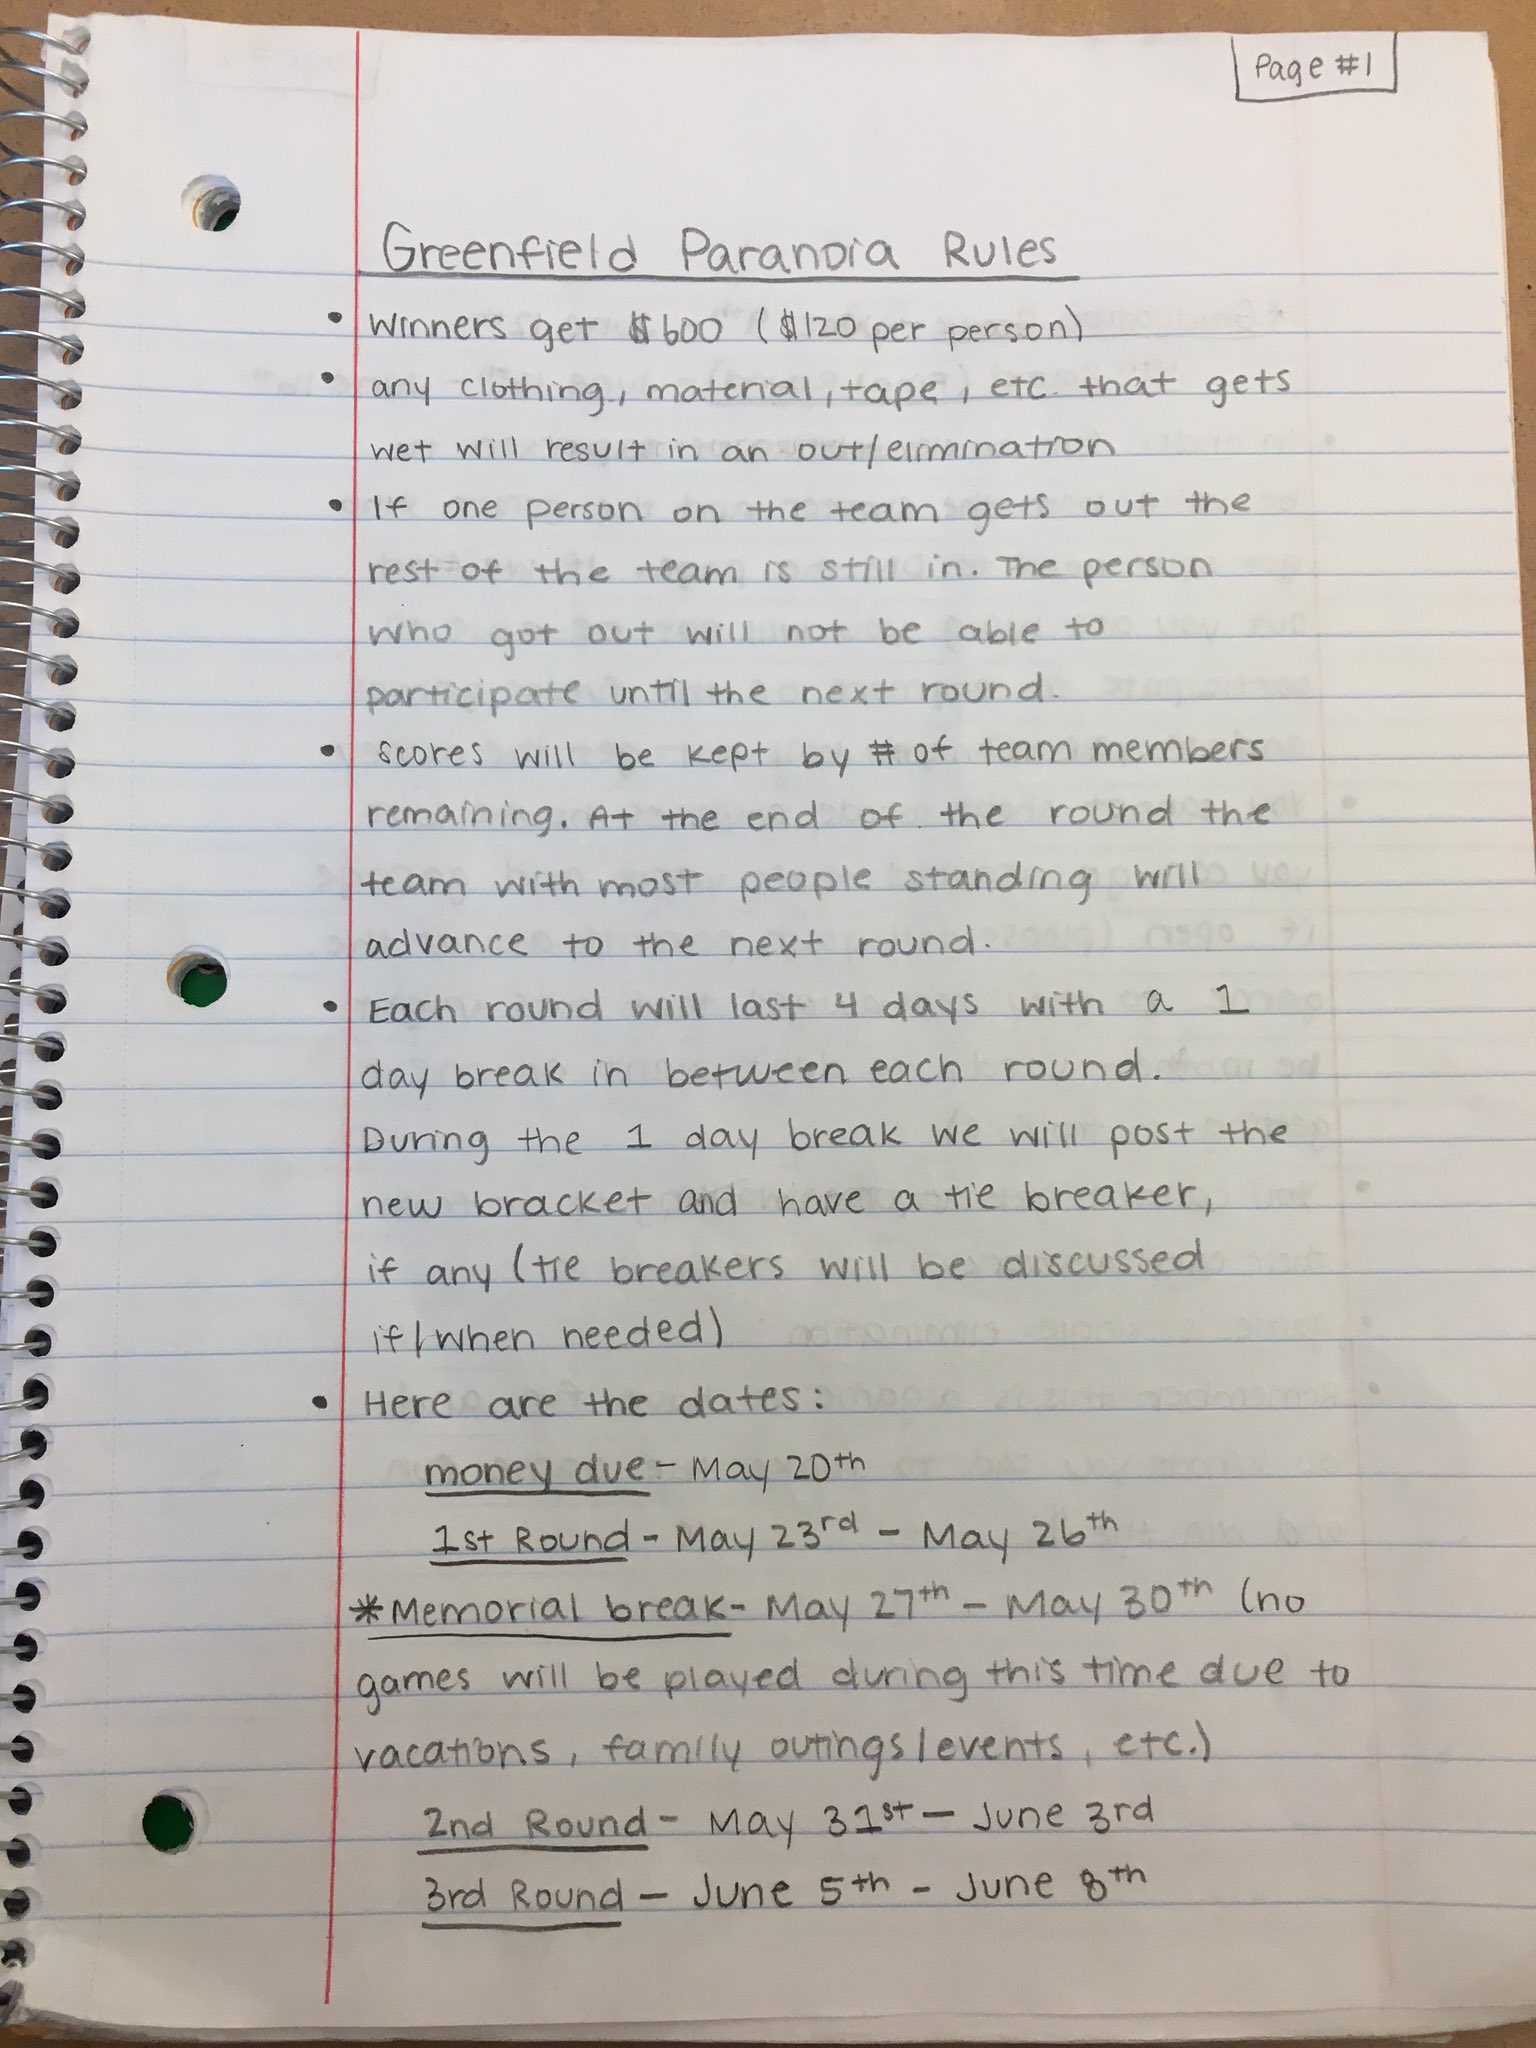 Page #1
Greenfield Paranoia Rules
• Winners get $600 ($120 per person)
• any clothing, material, tape, etc. that gets
wet will result in an out/elimination
• If one person on the team gets out the
rest of the team is still in. The person
who got out will not be able to
participate until the next round.
• scores will be kept by # of team members
remaining. At the end of the round the
team with most people standing will
advance to the next round.
• Each round will last 4 days with a 1
day break in between each round.
During the 1 day break we will post the
new bracket and have a tie breaker,
if any (tie breakers will be discussed
if/when needed)
• Here are the dates:
money due - May 20th
1st Round - May 23rd - May 26th
*Memorial break - May 27th - May 30th (no
games will be played during this time due to
vacations, family outings/events, etc.)
2nd Round - May 31st - June 3rd
3rd Round - June 5th - June 8th